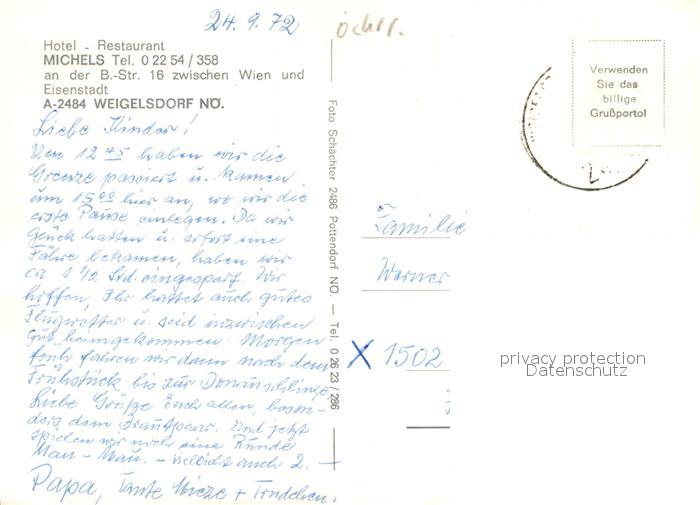 24.9.72
Öchrr.
Hotel - Restaurant
MICHELS Tel. 0 22 54 / 358
an der B.-Str. 16 zwischen Wien und
Eisenstadt
A-2484 WEIGELSDORF NÖ.
Verwenden
Sie das
billige
Grußportol
Liebe Kinder!
Um 12 45 haben wir die
Grenze passiert u. kamen
um 15 00 hier an, wo wir die
erste Pause einlegen. Da wir
Glück hatten u. sofort eine
Fähre bekamen, haben wir
ca 1 1/2 Std. eingespart. Wir
hoffen, Ihr hattet auch gutes
Flugwetter u. seid inzwischen
gut heimgekommen. Morgen
früh fahren wir dann nach dem
Frühstück bis zur Donauschlinge.
Liebe Grüße Euch allen, beson-
ders dem Brautpaar. Und jetzt
spielen wir noch eine Runde
Mau-Mau. - vielleicht auch 2. -
Papa, Tante Mieze + Trudchen.
Foto Schächter 2486 Pottendorf NÖ. — Tel. 0 26 23 / 286
Familie
Werner
X 1502
privacy protection
Datenschutz